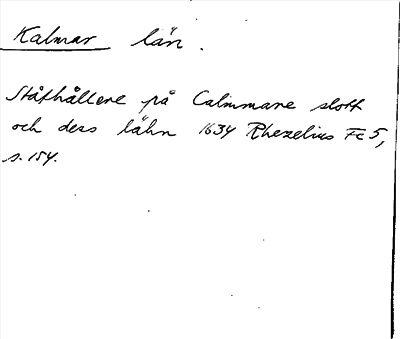 Kalmar län.
Ståthållere på Calmmare slott
och dess lähn 1634 Rhezelius Fc 5,
s. 154.